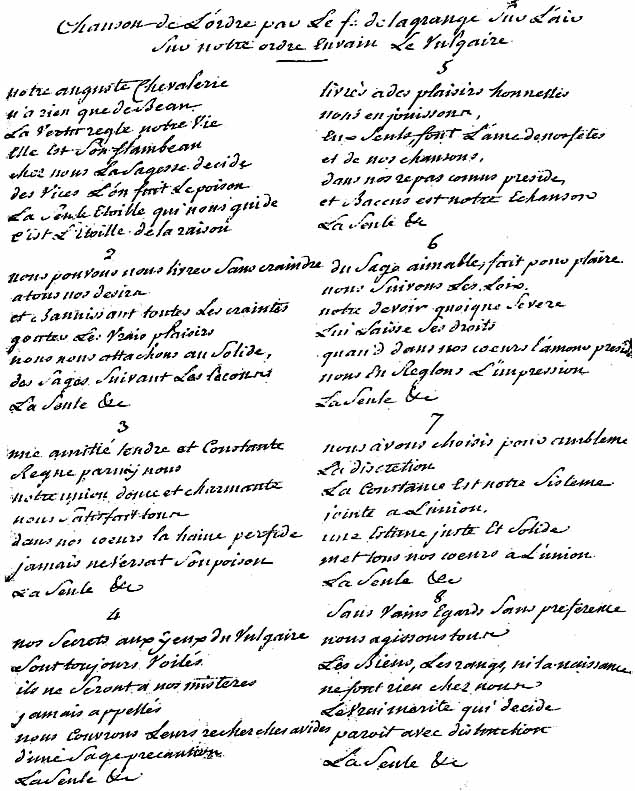 Chanson de L'ordre par Le f: de lagrange Sur L'air
Sur notre ordre Envain Le Vulgaire
notre auguste Chevalerie
n'a rien que de Beau
La Vertu regle notre Vie
Elle Est Son flambeau
chez nous La Sagesse decide
des Vices L'on fait Le poison
La Seule Etoille qui nous guide
C'est L'Etoille de la raison
2
nous pouvons nous livrer Sans craindre
a tous nos desirs
et Bannissant toutes Les craintes
gouter Les Vrais plaisirs
nous nous attachons au Solide,
des Sages Suivant Les Leçons
La Seule &c
3
une amitié tendre et Constante
Regne parmy nous
notre union douce et charmante
nous Satisfait tous
dans nos coeurs la haine perfide
jamais ne Versat Son poison
La Seule &c
4
nos Secrets aux yeux du Vulgaire
Sont toujours Voilés
ils ne Seront a nos misteres
jamais appellés
nous Couvrons Leurs recherches avides
d'une Sage precaution
La Seule &c
5
livrés a des plaisirs honnestes
nous en jouissons,
Eux Seuls font L'ame de nos fêtes
et de nos chansons,
dans nos repas comus preside
et Baccus est notre Echanson
La Seule &c
6
du Sage aimable, fait pour plaire
nous Suivons Les Loix
notre devoir quoique Severe
Lui Laisse Ses droits
quand dans nos coeurs l'amour preside
nous En Reglons L'impression
La Seule &c
7
nous avons choisis pour ambleme
La discretion
La Constance Est notre Sisteme
jointe a L'union,
une Estime juste Et Solide
met tous nos coeurs a L'union
La Seule &c
8
Sans Vains Egards Sans preference
nous agissons tous
Les Biens, Les rangs, ni la naissance
ne font rien chez nous
Le Vrai merite qui decide
paroit avec distinction
La Seule &c